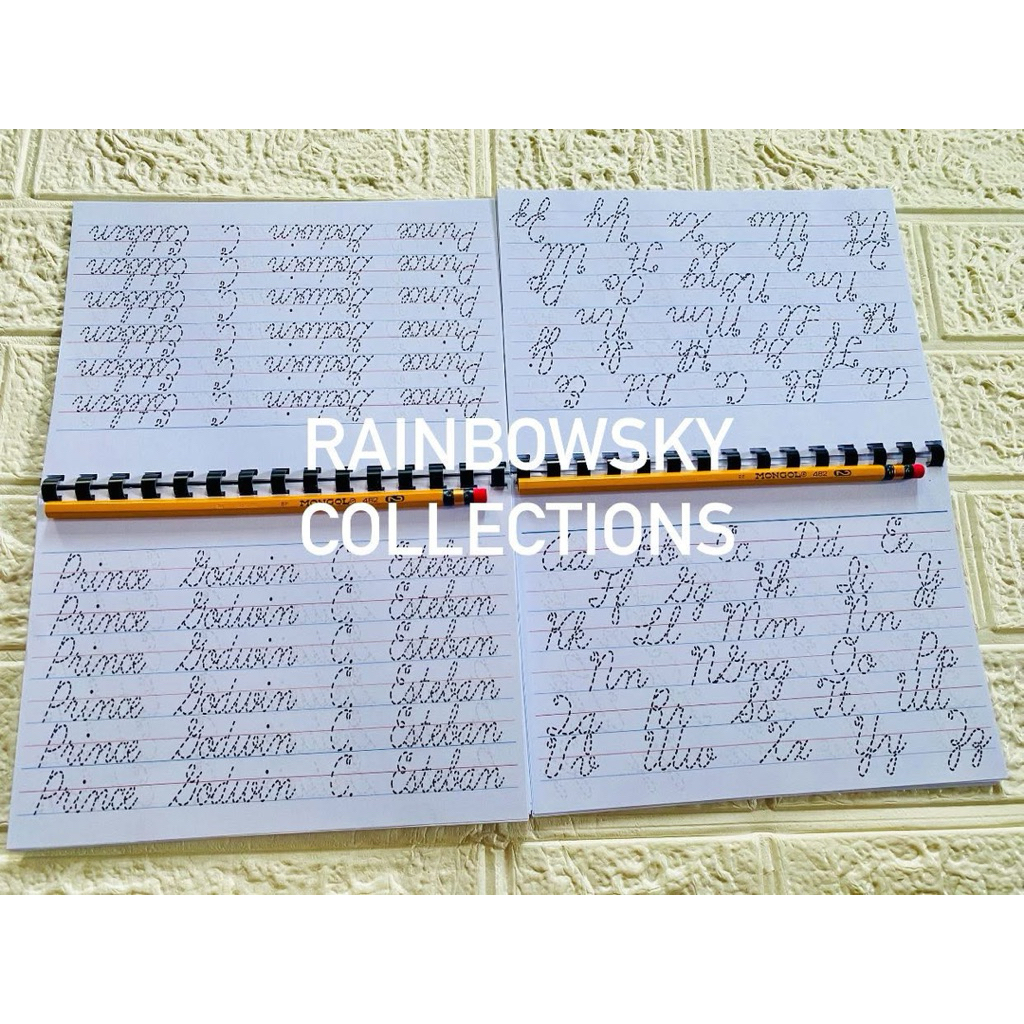 Prince Godwin C. Esteban
Prince Godwin C. Esteban
Prince Godwin C. Esteban
Prince Godwin C. Esteban
Prince Godwin C. Esteban
Prince Godwin C. Esteban
Aa Bb Cc Dd Ee
Ff Gg Hh Ii Jj
Kk Ll Mm Nn
Ññ NGng Oo Pp
Qq Rr Ss Tt Uu
Vv Ww Xx Yy Zz
RAINBOWSKY
COLLECTIONS
MONGOL® 482 2
MONGOL® 482 2
Prince Godwin C. Esteban
Prince Godwin C. Esteban
Prince Godwin C. Esteban
Prince Godwin C. Esteban
Prince Godwin C. Esteban
Prince Godwin C. Esteban
Aa Bb Cc Dd Ee
Ff Gg Hh Ii Jj
Kk Ll Mm Nn
Ññ NGng Oo Pp
Qq Rr Ss Tt Uu
Vv Ww Xx Yy Zz